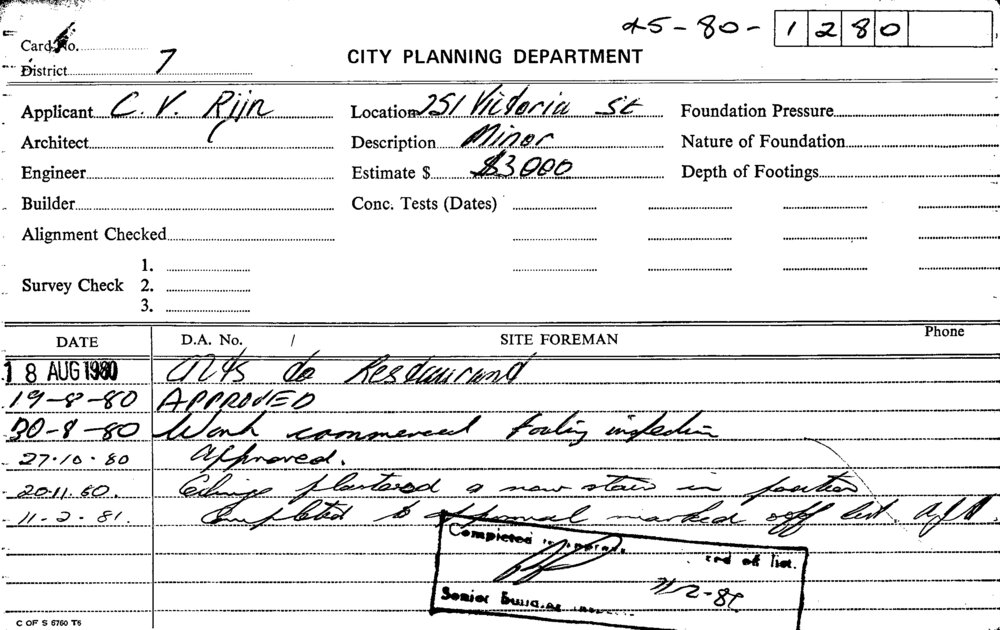 45-80- 1280
Card No.
District 7
CITY PLANNING DEPARTMENT
Applicant C. V. Rijn
Location 251 Victoria St
Foundation Pressure
Architect
Description Minor
Nature of Foundation
Engineer
Estimate $ $3000
Depth of Footings
Builder
Conc. Tests (Dates)
Alignment Checked
Survey Check 1.
2.
3.
DATE D.A. No. / SITE FOREMAN Phone
18 AUG 1980 to Restaurant
19-8-80 APPROVED
30-8-80 Work commenced footing inspection
27.10.80 approved.
20.11.80. plastered new stair in position
11-2-81. Completed to approval marked off list.
Completed off list.
Senior
C OF S 6760 T6